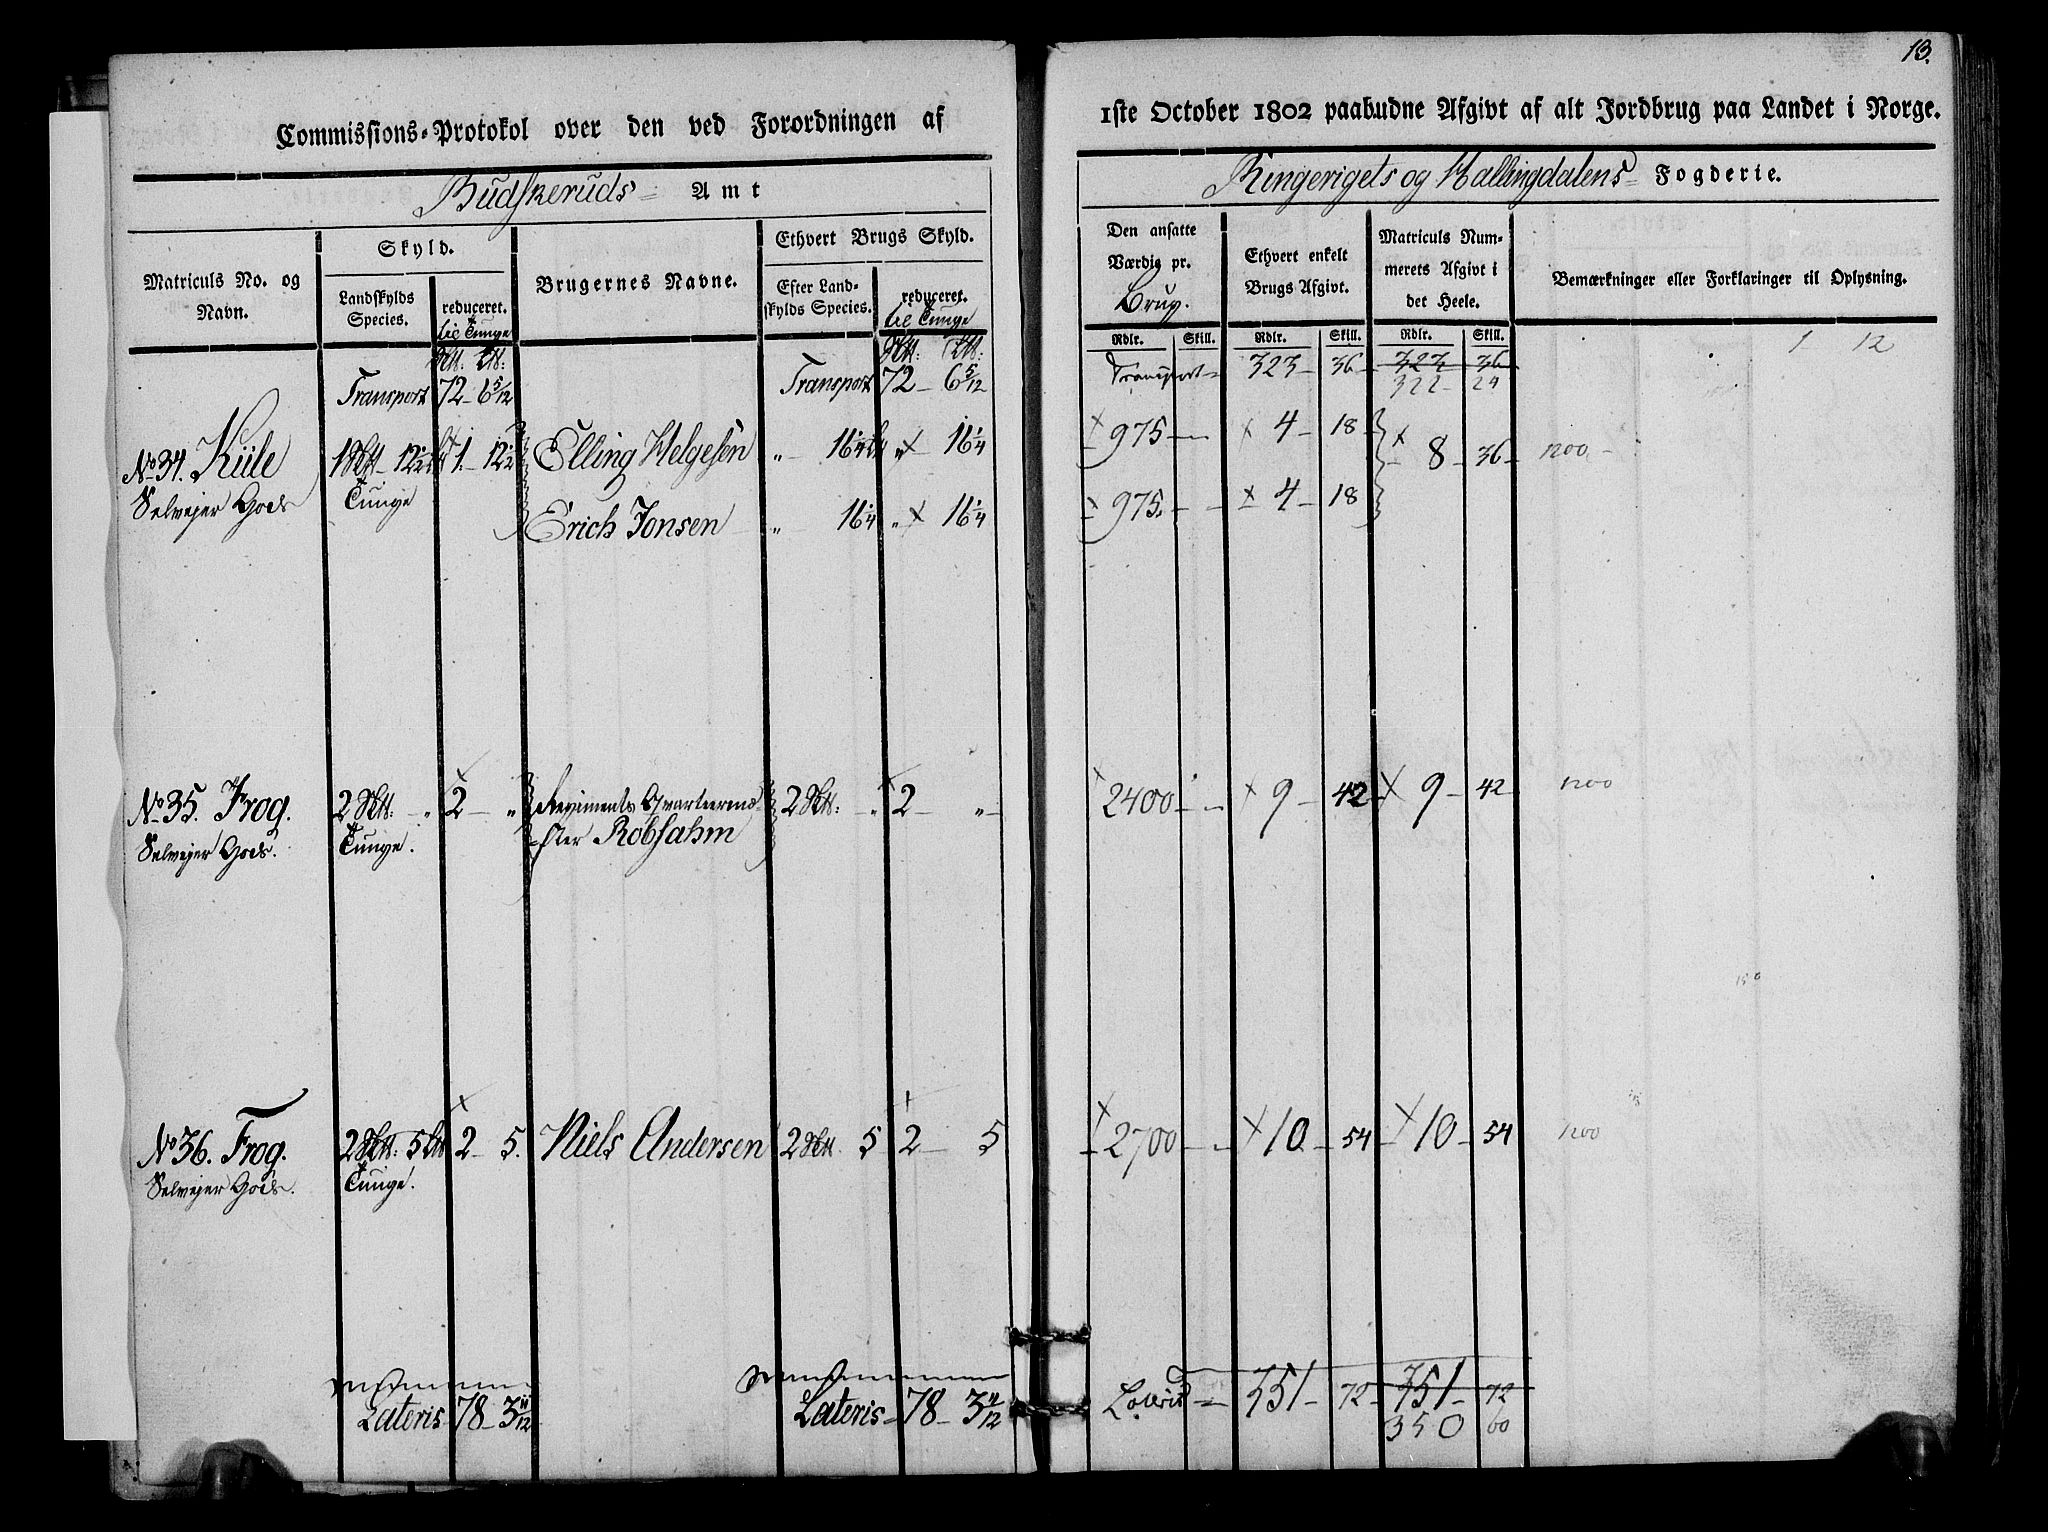 13.
Commissions-Protokol over den ved Forordningen af
1ste October 1802 paabudne Afgivt af alt Jordbrug paa Landet i Norge.
Budskeruds Amt
Ringerigets og Hallingdalens Fogderie.
Matriculs No. og Navn.
Skyld.
Landskylds Species.
reduceret.
til Tunge
Brugernes Navne.
Ethvert Brugs Skyld.
Efter Landskylds Species.
reduceret.
til Tunge
Den ansatte Værdie pr. Brug.
Ethvert enkelt Brugs Afgivt.
Matriculs Nummerets Afgivt i det Heele.
Bemærkninger eller Forklaringer til Oplysning.
Rdlr. Skill. Rdlr. Skill. Rdlr. Skill.
1 12
Transport 72 - 6 5/12 Transport 72 - 6 5/12 Transport 323 - 36 323 - 36
322 - 24
No 34. Kiile 1 12 1/2 1. - 12 1/2 Elling Helgesen " - 16 1/4 " 16 1/4 975 - 4 - 18 8 - 36 1200
Selvejer Gods Tunge
Erich Jonsen " 16 1/4 " 16 1/4 975. - 4 - 18
No 35. Frog. 2 - " 2 - " Regiments Qvarteerme- 2 - " 2 " 2400 - 9 - 42 9 - 42 1200
Selvejer Gods. Tunge. ster Robsahm
150
No 36. Frog. 2 5 2 - 5. Niels Andersen 2 5 2 - 5 2700 - 10 - 54 10 - 54 1200
Selvejer Gods. Tunge.
Lateris 78 - 3 11/12 Lateris 78 - 3 11/12 Lateris 351 - 72 351 - 72
350 60